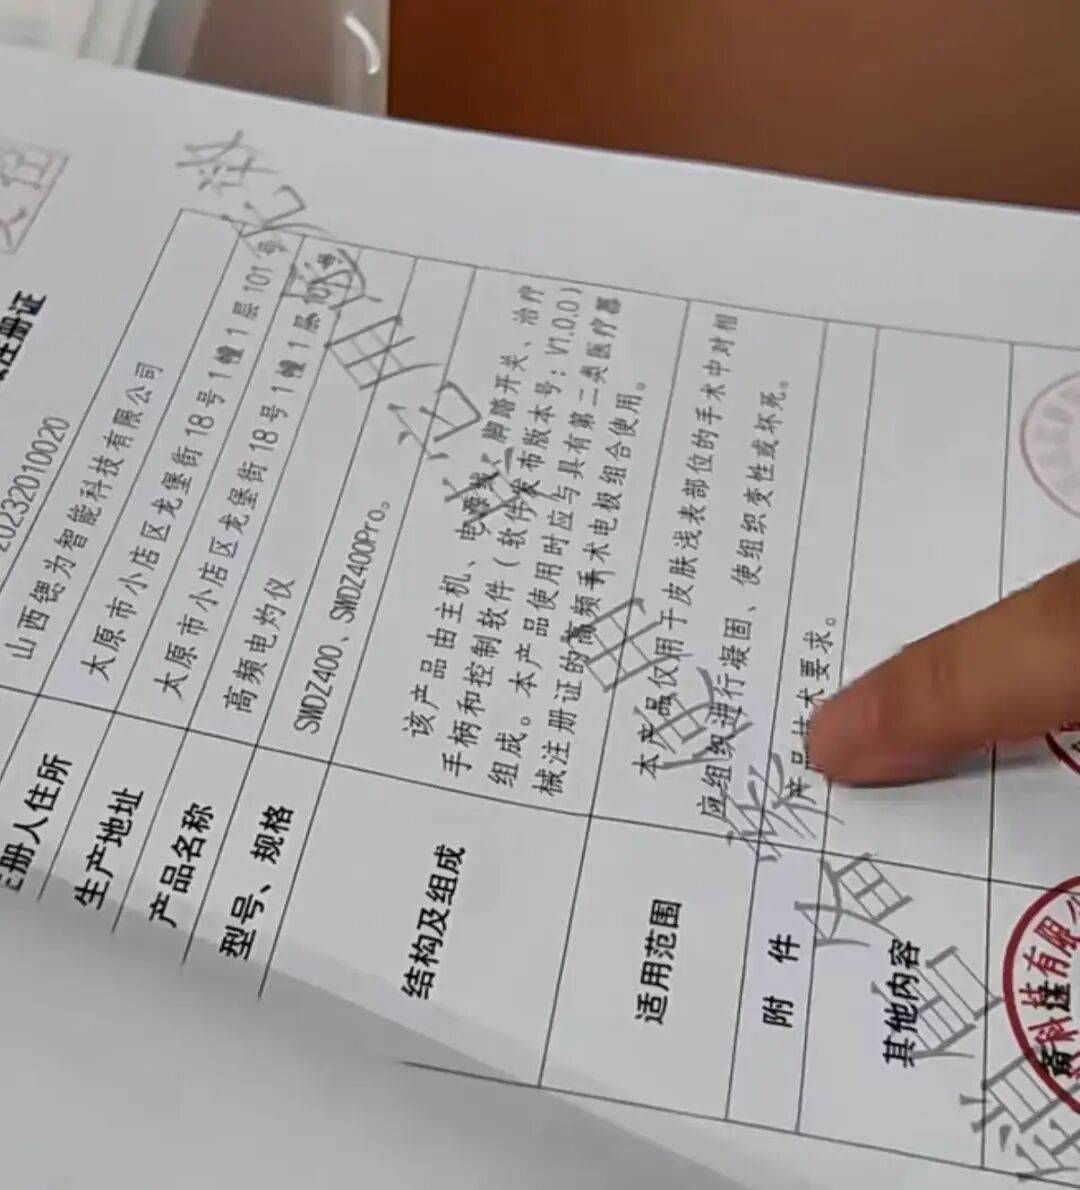 注册证
20232010020
山西锶为智能科技有限公司
注册人住所 太原市小店区龙堡街18号1幢1层101号
生产地址 太原市小店区龙堡街18号1幢1层101号
产品名称 高频电灼仪
型号、规格 SWDZ400、SWDZ400Pro。
结构及组成 该产品由主机、电源线、脚踏开关、治疗
手柄和控制软件（软件发布版本号：V1.0.0）
组成。本产品使用时应与具有第二类医疗器
械注册证的高频手术电极组合使用。
适用范围 本产品仅用于皮肤浅表部位的手术中对相
应组织进行凝固、使组织变性或坏死。
附 件 产品技术要求。
其他内容
科技有限公